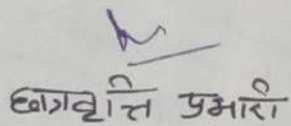 छात्रवृत्ति प्रभारी